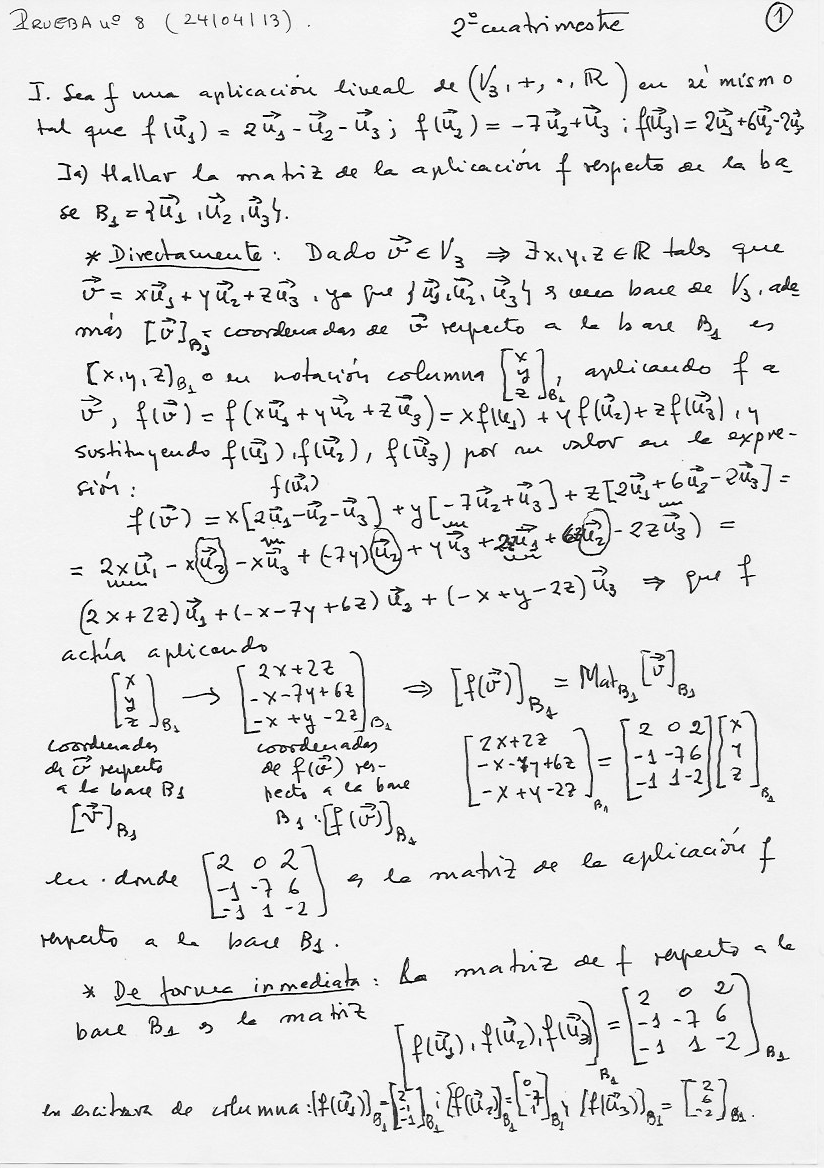 PRUEBA nº 8 (24/04/13). 2º cuatrimestre ①
I. Sea f una aplicación lineal de (V₃,+,·,ℝ) en sí mismo
tal que f(u⃗₁) = 2u⃗₁ - u⃗₂ - u⃗₃; f(u⃗₂) = -7u⃗₂ + u⃗₃; f(u⃗₃) = 2u⃗₁ + 6u⃗₂ - 2u⃗₃
Ia) Hallar la matriz de la aplicación f respecto de la ba-
se B₁ = {u⃗₁, u⃗₂, u⃗₃}.
* Directamente: Dado v⃗ ∈ V₃ ⇒ ∃x,y,z ∈ ℝ tales que
v⃗ = xu⃗₁ + yu⃗₂ + zu⃗₃, ya que {u⃗₁, u⃗₂, u⃗₃} es una base de V₃, ade
más [v⃗]_B₁ = coordenadas de v⃗ respecto a la base B₁ es
[x,y,z]_B₁ o en notación columna [x y z]_B₁, aplicando f a
v⃗, f(v⃗) = f(xu⃗₁ + yu⃗₂ + zu⃗₃) = xf(u₁) + yf(u⃗₂) + zf(u⃗₃), y
sustituyendo f(u⃗₁), f(u⃗₂), f(u⃗₃) por su valor en la expre-
sión: f(u⃗₁)
f(v⃗) = x[2u⃗₁ - u⃗₂ - u⃗₃] + y[-7u⃗₂ + u⃗₃] + z[2u⃗₁ + 6u⃗₂ - 2u⃗₃] =
= 2xu⃗₁ - xu⃗₂ - xu⃗₃ + (-7y)u⃗₂ + yu⃗₃ + 2zu⃗₁ + 6zu⃗₂ - 2zu⃗₃) =
(2x+2z)u⃗₁ + (-x-7y+6z)u⃗₂ + (-x+y-2z)u⃗₃ ⇒ que f
actúa aplicando
[x y z]_B₁ → [2x+2z -x-7y+6z -x+y-2z]_B₁ ⇒ [f(v⃗)]_B₁ = Mat_B₁ [v⃗]_B₁
coordenadas
de v⃗ respecto
a la base B₁
[v⃗]_B₁
coordenadas
de f(v⃗) res-
pecto a la base
B₁: [f(v⃗)]_B₁
[2x+2z -x-7y+6z -x+y-2z]_B₁ = [2 0 2 -1 -7 6 -1 1 -2] [x y z]_B₁
en donde [2 0 2 -1 -7 6 -1 1 -2] es la matriz de la aplicación f
respecto a la base B₁.
* De forma inmediata: La matriz de f respecto a la
base B₁ es la matriz [f(u⃗₁), f(u⃗₂), f(u⃗₃)]_B₁ = [2 0 2 -1 -7 6 -1 1 -2]_B₁
en escitura de columna: [f(u⃗₁)]_B₁ = [2 -1 -1]_B₁; [f(u⃗₂)]_B₁ = [0 -7 1]_B₁ y [f(u⃗₃)]_B₁ = [2 6 -2]_B₁.